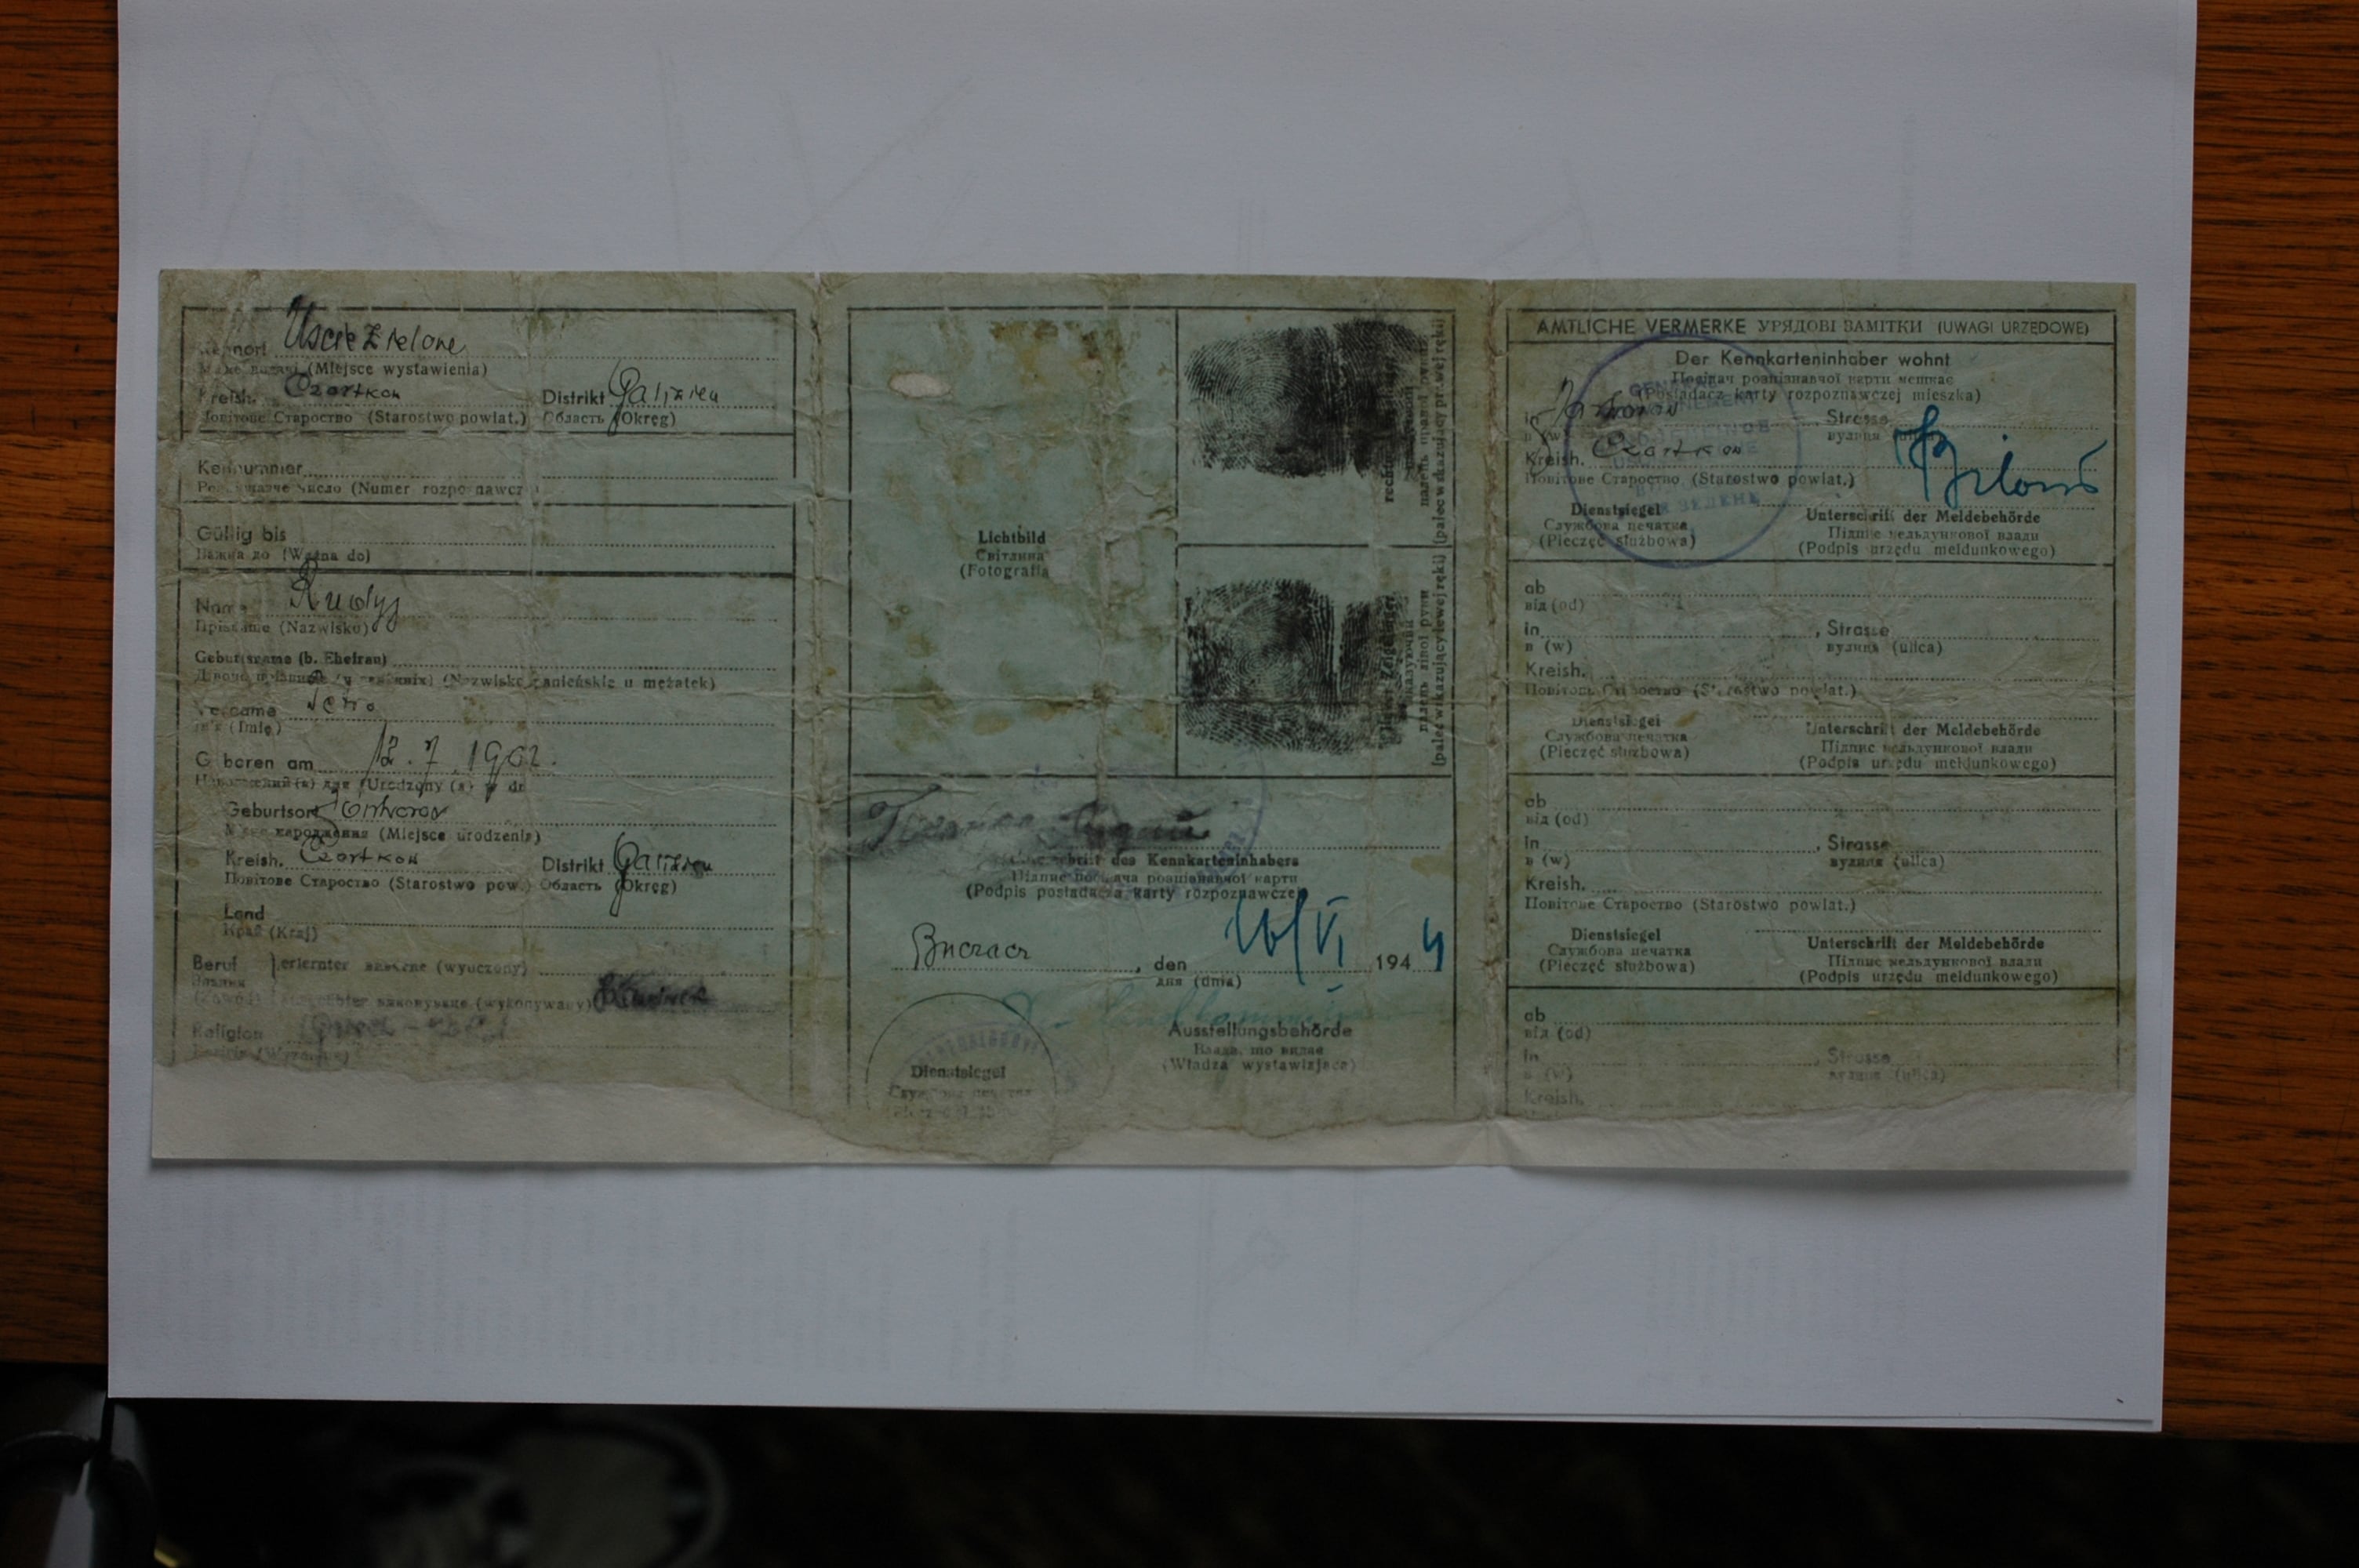 Uscie Zielone
Kennort
(Miejsce wystawienia)
Kreish. Czortkow Distrikt Galizien
Повітове Староство (Starostwo powiat.) Область (Okręg)
Kennummer
Розпізнавче число (Numer rozpoznawczy)
Gültig bis
Важна до (Ważna do)
Name Rudyj
Прізвище (Nazwisko)
Geburtsname (b. Ehefrau)
(Nazwisko panieńskie u mężatek)
Vorname Petro
ім'я (Imię)
Geboren am 12.7.1902.
(Urodzony (a) w dn.
Geburtsort
Місце народження (Miejsce urodzenia)
Kreish. Czortkow Distrikt Galizien
Повітове Староство (Starostwo pow.) Область (Okręg)
Land
Край (Kraj)
Beruf erlernter вивчене (wyuczony)
виконуване (wykonywany)
Religion
Lichtbild
Світлина
(Fotografia
палець правої руки
(palec wskazujący pr.wej ręki)
палець лівої руки
(palec wskazujący lewej ręki)
Unterschrift des Kennkarteninhabers
Підпис посідача розпізнавчої карти
(Podpis posiadacza karty rozpoznawczej
Buczacz, den 16/VI 1944
дня (dnia)
Ausstellungsbehörde
Влада, що видає
(Władza wystawiająca)
Dienstsiegel
Службова печатка
AMTLICHE VERMERKE УРЯДОВІ ЗАМІТКИ (UWAGI URZĘDOWE)
Der Kennkarteninhaber wohnt
Посідач розпізнавчої карти мешкає
(Posiadacz karty rozpoznawczej mieszka)
in , Strasse
в (w) вулиця (ulica)
Kreish. Czortkow
Повітове Староство (Starostwo powiat.)
Dienstsiegel Unterschrift der Meldebehörde
Службова печатка Підпис мельдункової влади
(Pieczęć służbowa) (Podpis urzędu meldunkowego)
ab
від (od)
in , Strasse
в (w) вулиця (ulica)
Kreish.
Повітове Староство (Starostwo powiat.)
Dienstsiegel Unterschrift der Meldebehörde
Службова печатка Підпис мельдункової влади
(Pieczęć służbowa) (Podpis urzędu meldunkowego)
ab
від (od)
in , Strasse
в (w) вулиця (ulica)
Kreish.
Повітове Староство (Starostwo powiat.)
Dienstsiegel Unterschrift der Meldebehörde
Службова печатка Підпис мельдункової влади
(Pieczęć służbowa) (Podpis urzędu meldunkowego)
ab
від (od)
in , Strasse
в (w) вулиця (ulica)
Kreish.